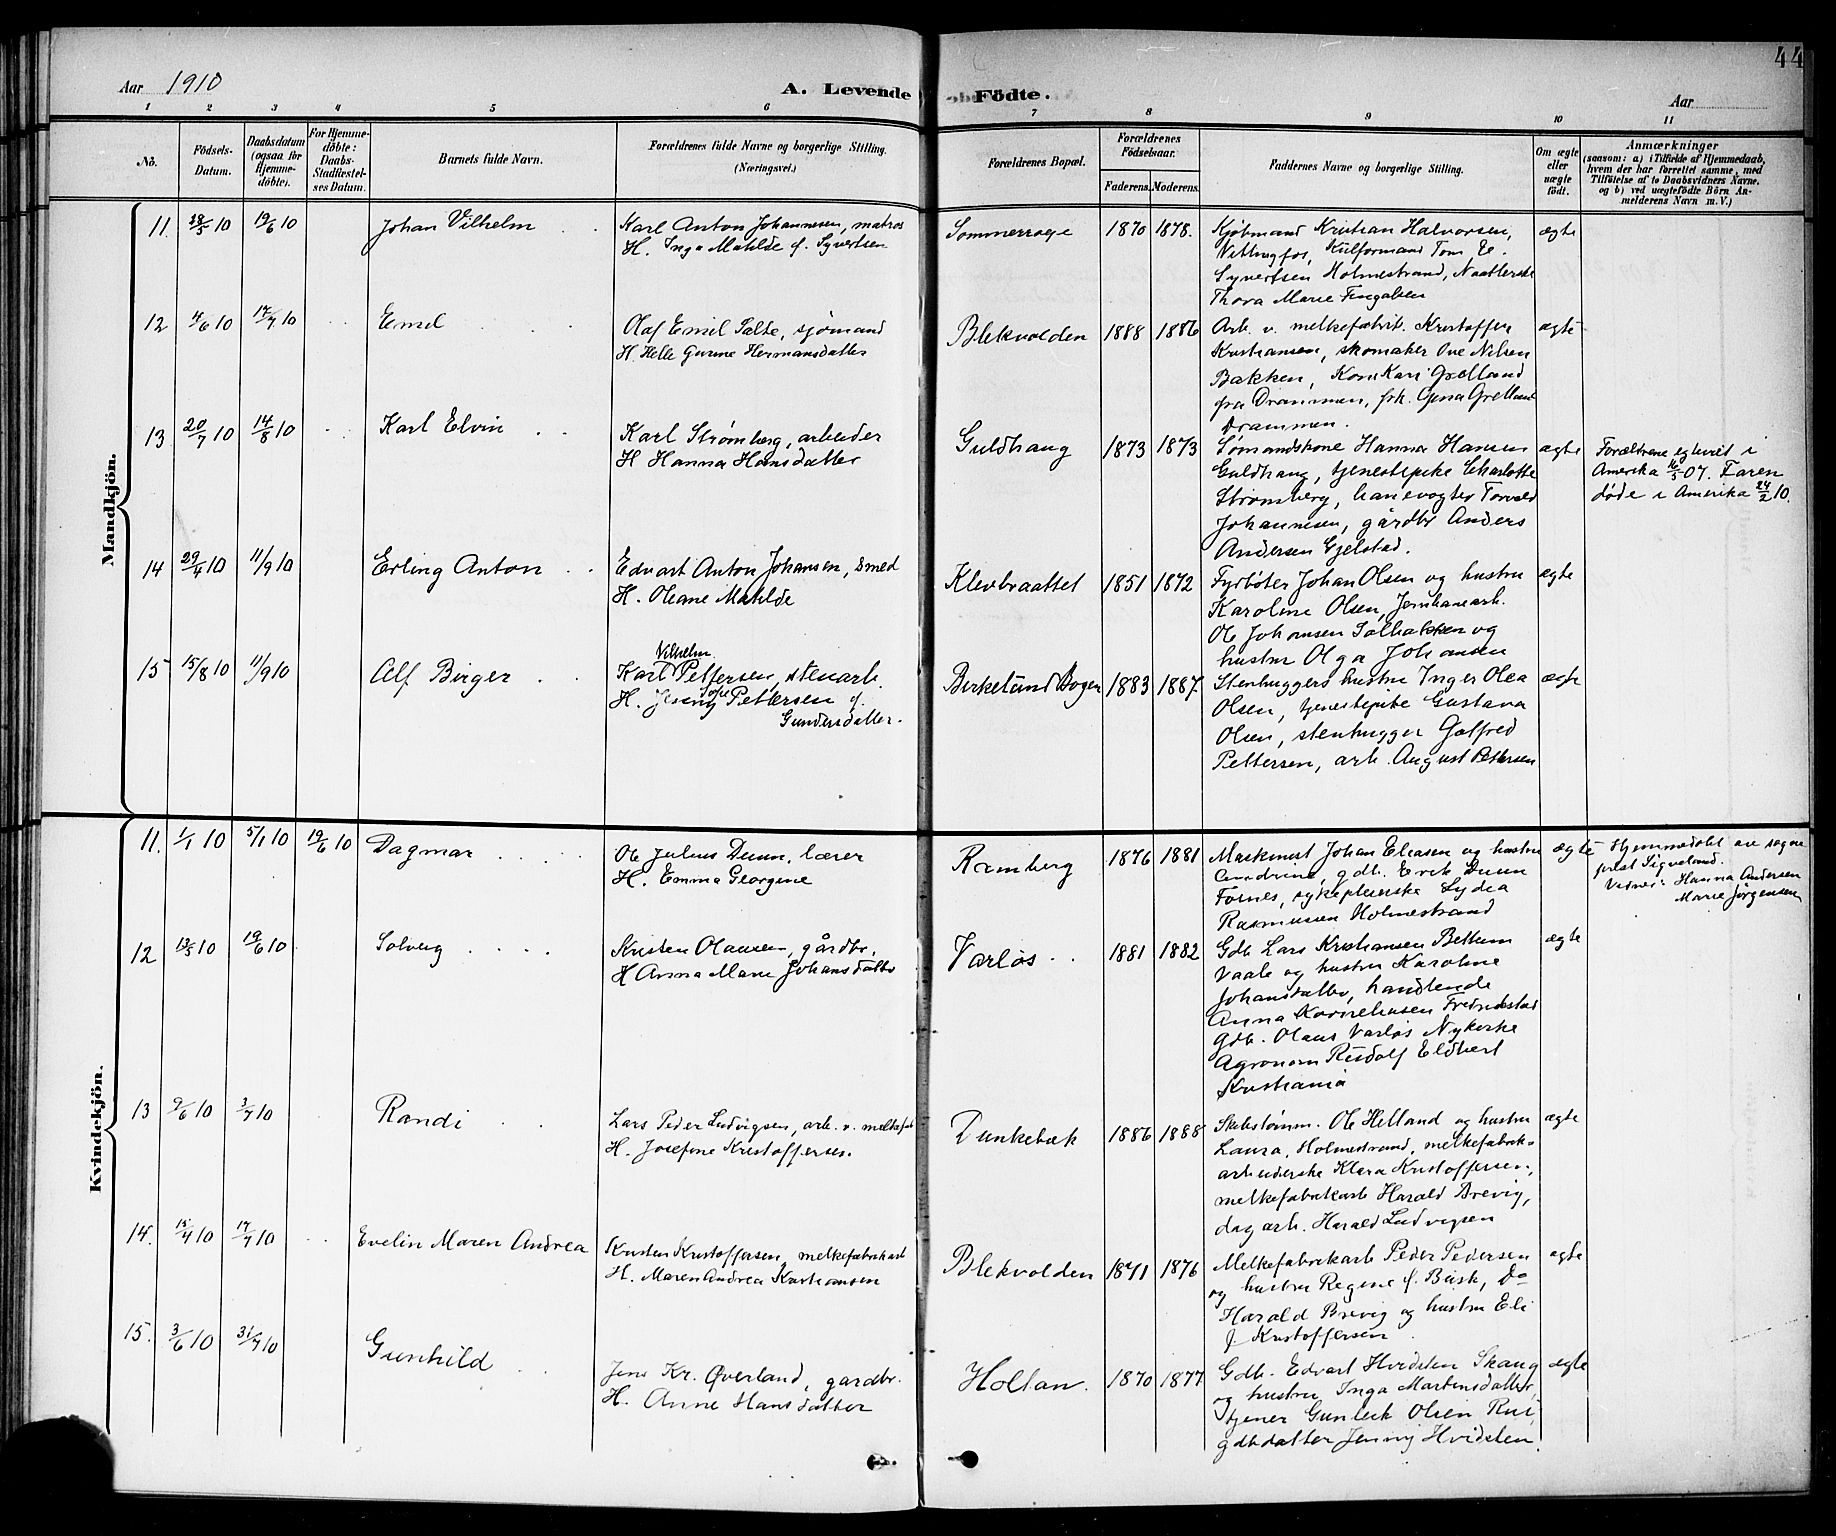 44
Aar 1910
A. Levende Födte.
Aar
1 2 3 4 5 6 7 8 9 10 11
No.
Födsels-
Datum.
Daabsdatum
(ogsaa for
Hjemme-
döbte).
For Hjemme-
döbte:
Daabs-
Stadfæstel-
ses Datum.
Barnets fulde Navn.
Forældrenes fulde Navne og borgerlige Stilling.
(Næringsvei.)
Forældrenes Bopæl.
Forældrenes
Födselsaar.
Faderens. Moderens.
Faddernes Navne og borgerlige Stilling.
Om ægte
eller
uægte
født.
Anmærkninger
(saasom: a) i Tilfælde af Hjemmedaab,
hvem der har forrettet samme, med
Tilföielse af to Daabsvidners Navne,
og b) ved uægtefödte Börn An-
melderens Navn m. V.)
Mandkjön.
11. 10 19/6 10 Johan Vilhelm
Karl Anton Johannesen, matros
H. Inga Matilde f. Syvertsen
Sommerroge 1870 1878.
Kjøbmand Kristian Halvorsen,
Vittingfos, Kulformand Tom E.
Syvertsen Holmestrand,
Thora Marie Fingalsen
ægte
12 4/6 10 17/7 10 Emil
Olaf Emil Salte, sjømand
H. Helle Gurine Hermansdatter
Blekvolden 1888 1886
Arb. v. melkefabrik. Kristoffer
Kristiansen, skomaker Ove Nilsen
Bakken, Kone Kari Grelland
fra Drammen, frk. Gina Grelland
Drammen.
ægte
13 20/7 10 14/8 10 Karl Elvin
Karl Strømberg, arbeider
H Hanna Hansdatter
Guldhaug 1873 1873
Sømandskone Hanna Hansen
Guldhaug, tjenestepike Charlotte
Strømberg, banevogter Torvald
Johannesen, gårdbr Anders
Andersen Gjelstad.
ægte
Forældrene egteviet i
Amerika 16/5 07. Faren
døde i Amerika 24/2 10.
14 29/4 10 11/9 10 Erling Anton
Edvart Anton Johansen, smed
H. Oleane Matilde
Klevbraattet 1851 1872
Fyrbøter Johan Olsen og hustru
Karoline Olsen, Jernbanearb.
Ole Johansen Solbakken og
hustru Olga Johansen
ægte
15 15/8 10 11/9 10 Alf Birger
Vilhelm
Karl Pettersen, stenarb.
H. Jenny Sofie Pettersen f.
Gundersdatter.
Birkelund Bogen 1883 1887.
Stenhuggers hustru Inger Olea
Olsen, tjenestepike Gustava
Olsen, stenhugger Gotfred
Pettersen, arb. August Pettersen
ægte
Kvindekjön.
11. 1/1 10 5/1 10 19/6 10 Dagmar
Ole Julius Duun, lærer
H. Emma Georgine
Ramberg 1876 1881
Maskinist Johan Eliasen og hustru
gdb. Erik Duun
Fornes, sykepleierske Lydia
Rasmussen Holmestrand
ægte
Hjemmedøbt av sogne
prest Sigveland.
Vidner: Hanna Andersen
Marie Jørgensen
12 13/5 10 19/6 10 Solveig
Kristen Olausen, gårdbr.
H Anna Marie Johansdatter
Varløs 1881 1882
Gdb. Lars Kristiansen Bettum
Vaale og hustru Karoline
Johansdatter, handlende
Anna Korneliusen Fredrikstad
Gdb. Olaus Varløs Nykirke
Agronom Rudolf Eldbert
Kristiania
ægte
13 9/6 10 3/7 10 Randi
Lars Peder Ludvigsen, arb. v. melkefab
H. Josefine Kristoffersen.
Dunkebæk 1886 1888
Skibstømm. Ole Helland og hustru
Laura, Holmestrand, melkefabrik-
arbeiderske Klara Kristoffersen,
melkefabrikarb Harald Brevig,
dagarb. Harald Ludvigsen
ægte
14. 15/4 10 17/7 10 Evelin Maren Andrea
Kristen Kristoffersen, melkefabrikarb
H. Maren Andrea Kristiansen
Blekvolden 1871 1876
Melkefabrikarb Peder Pedersen
og hustru Regine f. Busk, Do
Harald Brevig og hustru Eli
f. Kristoffersen
ægte
15. 3/6 10 31/7 10 Gunhild
Jens Kr. Øverland, gardbr.
H. Anne Hansdatter
Holtan. 1870 1877
Gdb. Edvart Hvidsten Skaug
og hustru Inga Martinsdatter,
tjener Gunleik Olsen Rui,
gdbdatter Jenny Hvidsten.
ægte